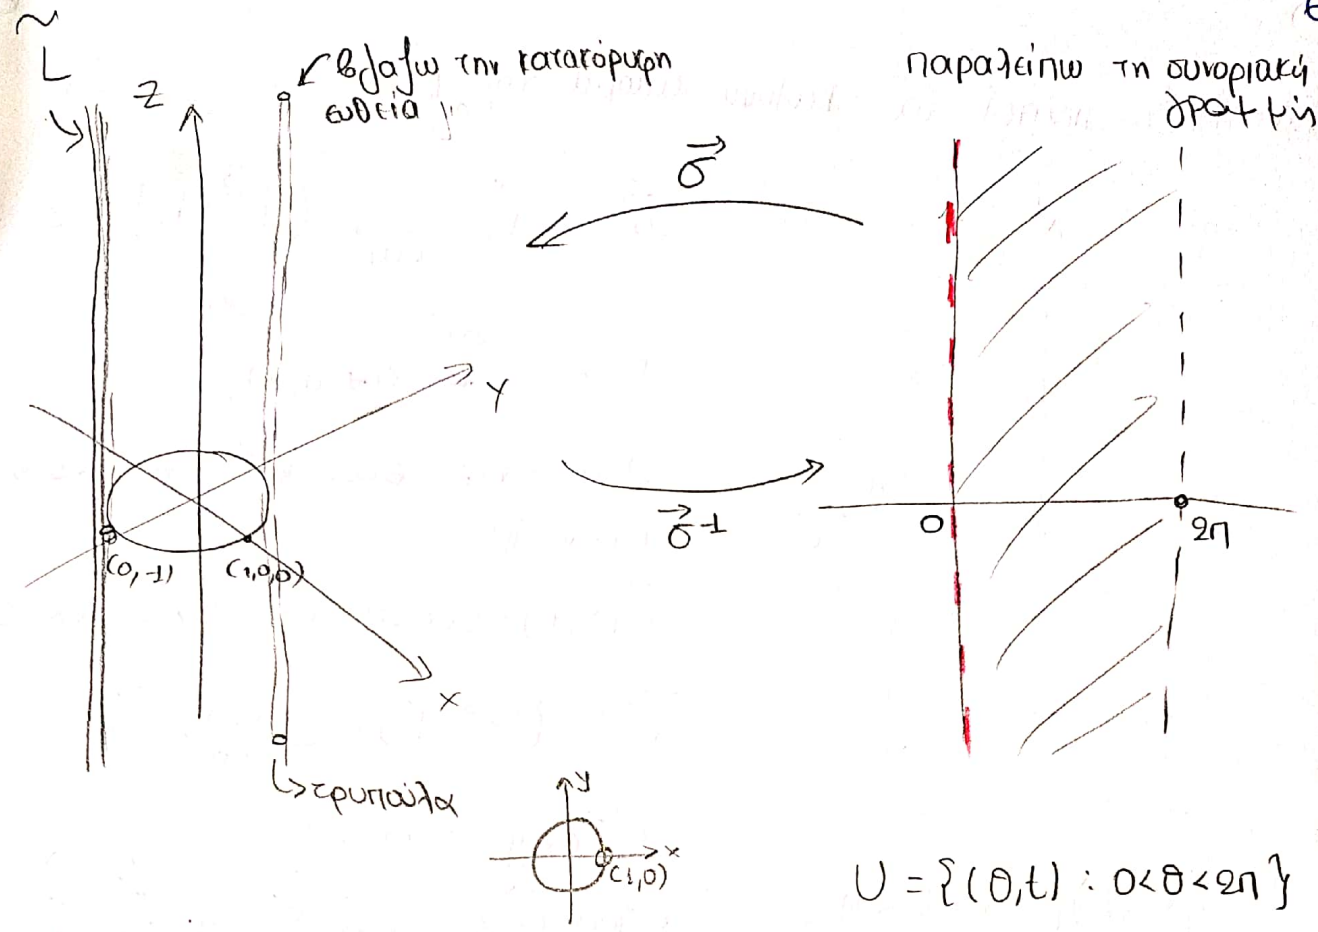 ~
L
βγάζω την κατακόρυφη
ευθεία
παραλείπω τη συνοριακή
γραμμή
z
σ⃗
y
σ⃗⁻¹
0
2π
(0,-1)
(1,0,0)
x
τρυπούλα
y
x
(1,0)
U = {(θ,t) : 0<θ<2π}